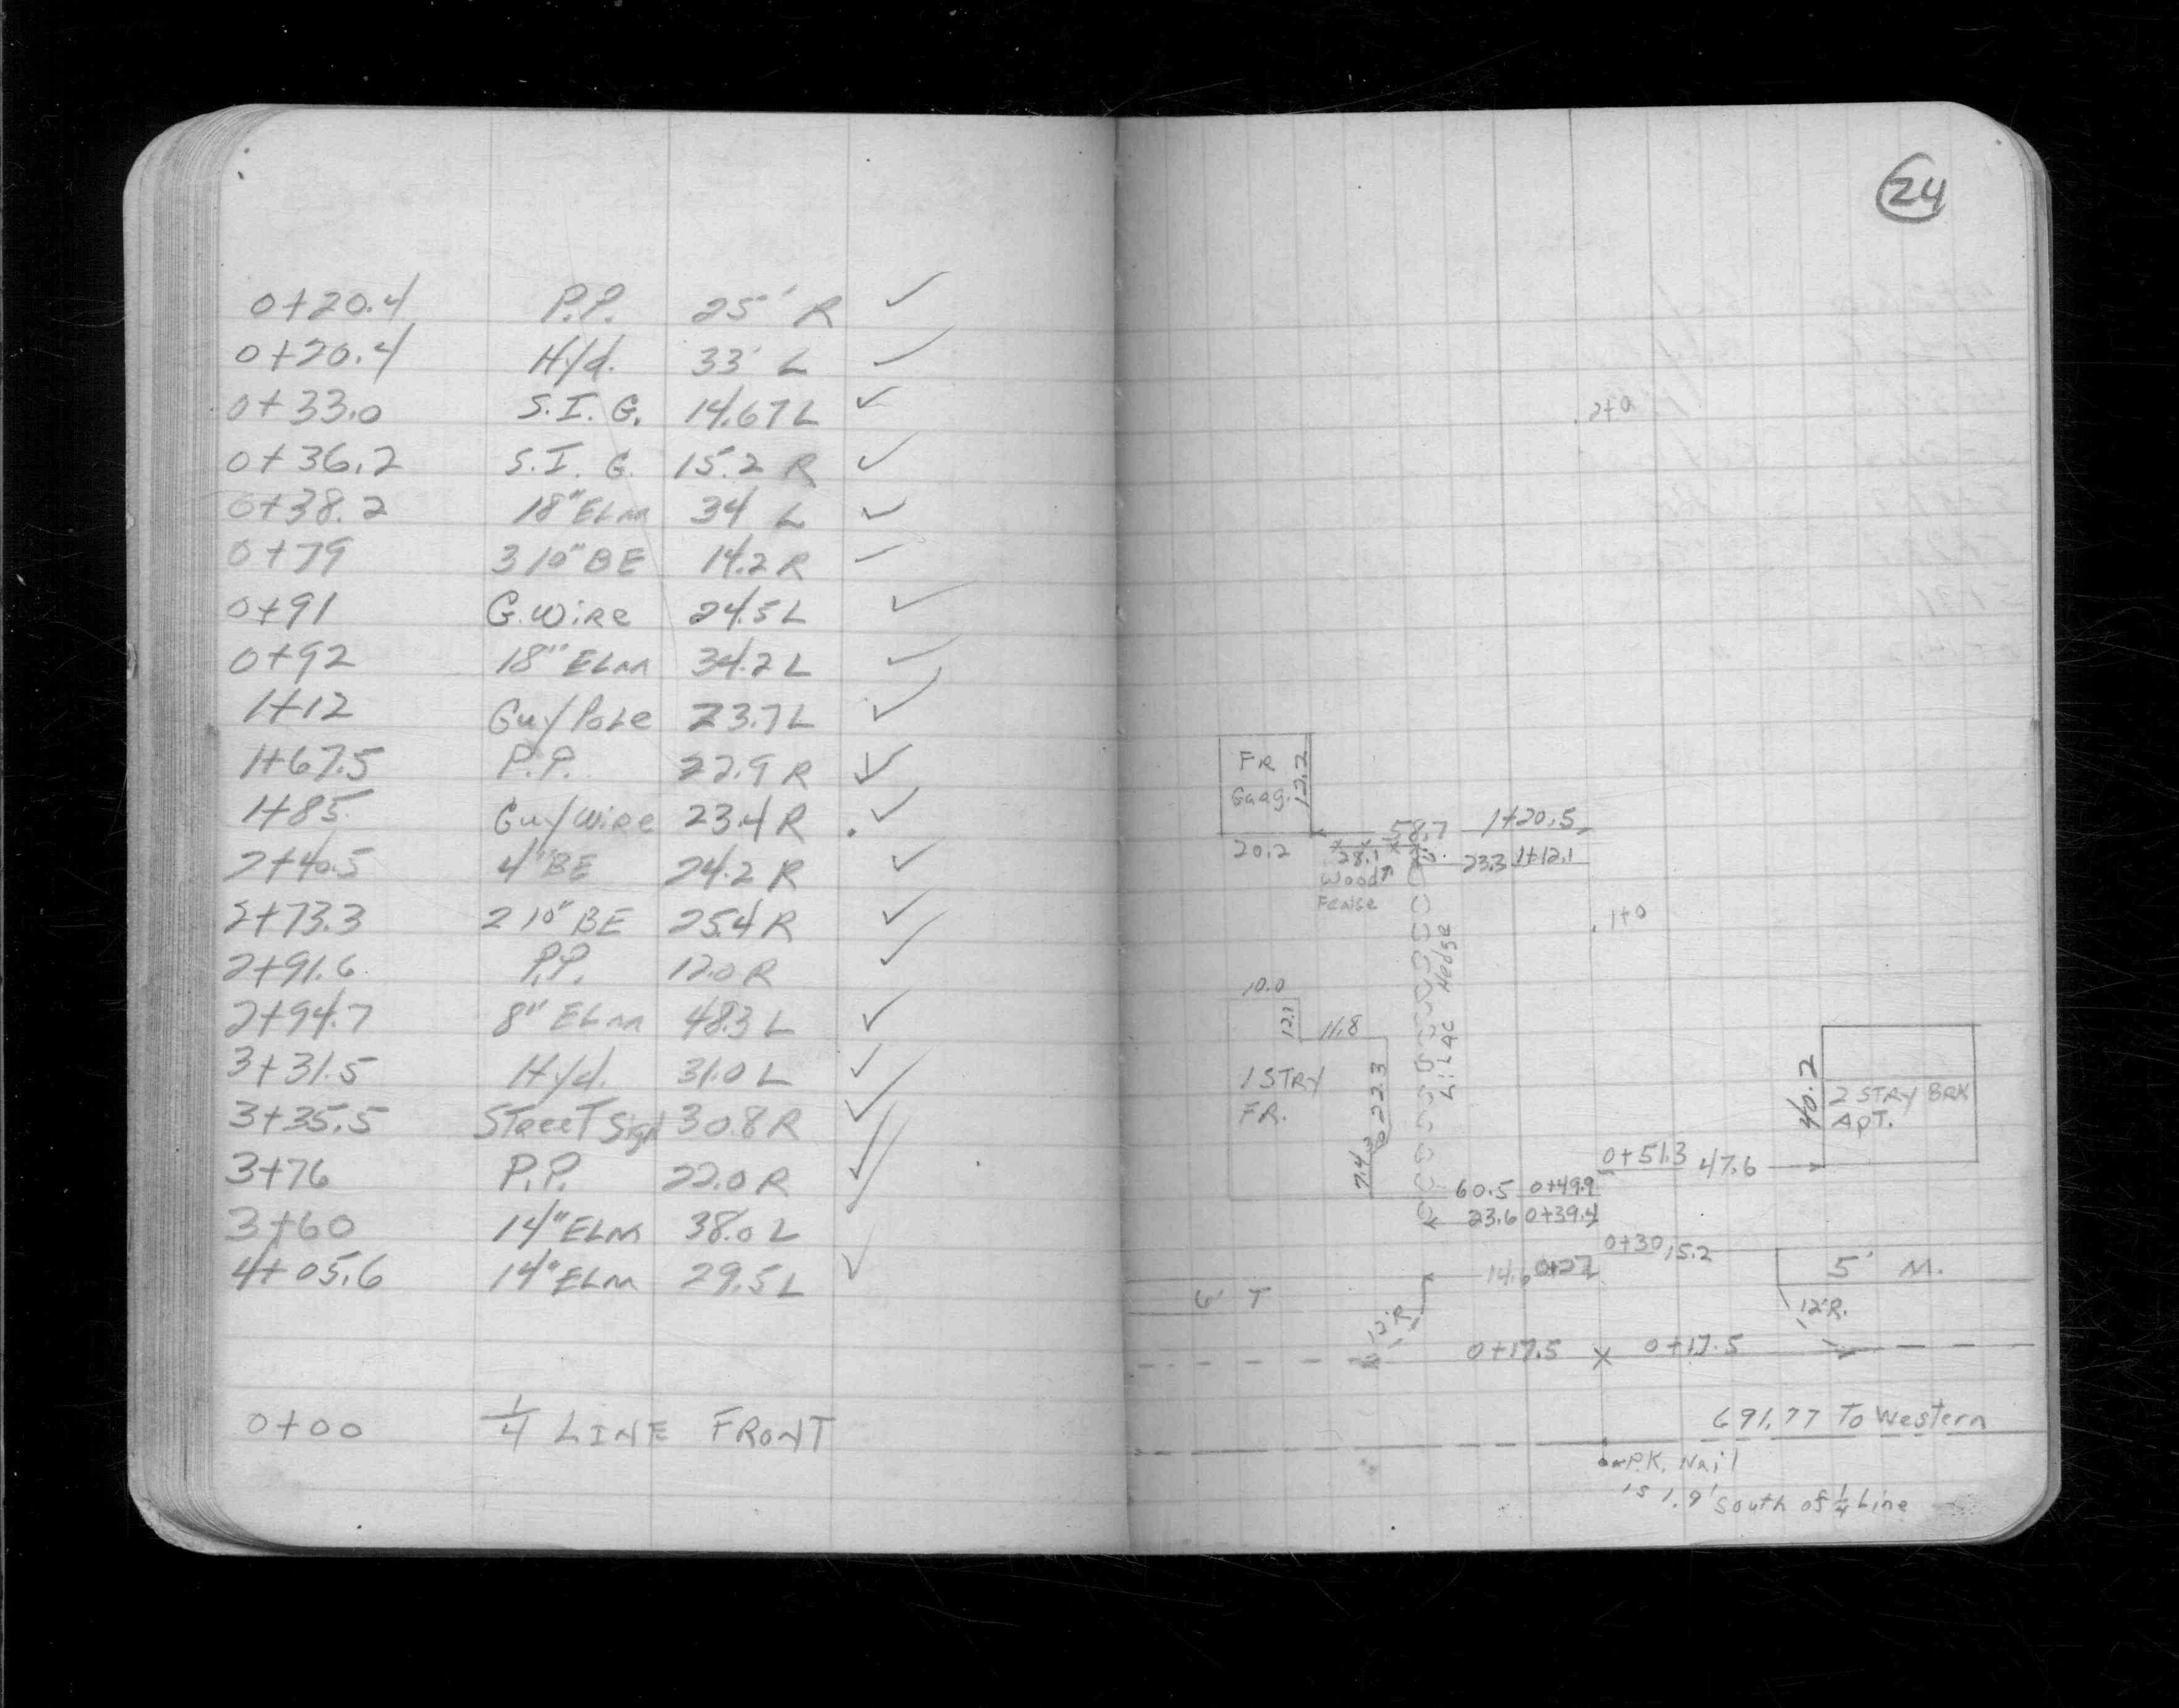 0+20.4 P.P. 25' R ✓
0+20.4 Hyd. 33' L ✓
0+33.0 S.I.G. 14.67 L ✓
0+36.2 S.I.G. 15.2 R ✓
0+38.2 18" ELM 34 L ✓
0+79 3 10" BE 14.2 R ✓
0+91 G. WiRe 24.5 L ✓
0+92 18" ELM 34.2 L ✓
1+12 Guy PoLe 23.7 L ✓
1+67.5 P.P. 22.9 R ✓
1+85 Guy WiRe 23.4 R ✓
2+40.5 4" BE 24.2 R ✓
2+73.3 2 10" BE 25.4 R ✓
2+91.6 P.P. 12.0 R ✓
2+94.7 8" ELM 48.3 L ✓
3+31.5 Hyd. 31.0 L ✓
3+35.5 STreeT Sign 30.8 R ✓
3+76 P.P. 22.0 R ✓
3+60 14" ELM 38.0 L ✓
4+05.6 14" ELM 29.5 L ✓
0+00 1/4 LINE FRONT
24
2+0
FR
Gaag.
12.2
58.7 1+20.5
20.2
28.1
23.3 1+12.1
Wood
Fense
1+0
LiLac Hedge
10.0
12.1
11.8
1 STRY
FR.
22.3
40.2
2 STRY BRK
APT.
0+51.3 47.6
60.5 0+49.9
23.6 0+39.4
0+30 15.2
14.6 0+27
5' M.
6' T
12'R
12'R.
0+17.5 0+17.5
691.77 To Western
P.K. Nail
is 1.9' South of 1/4 Line